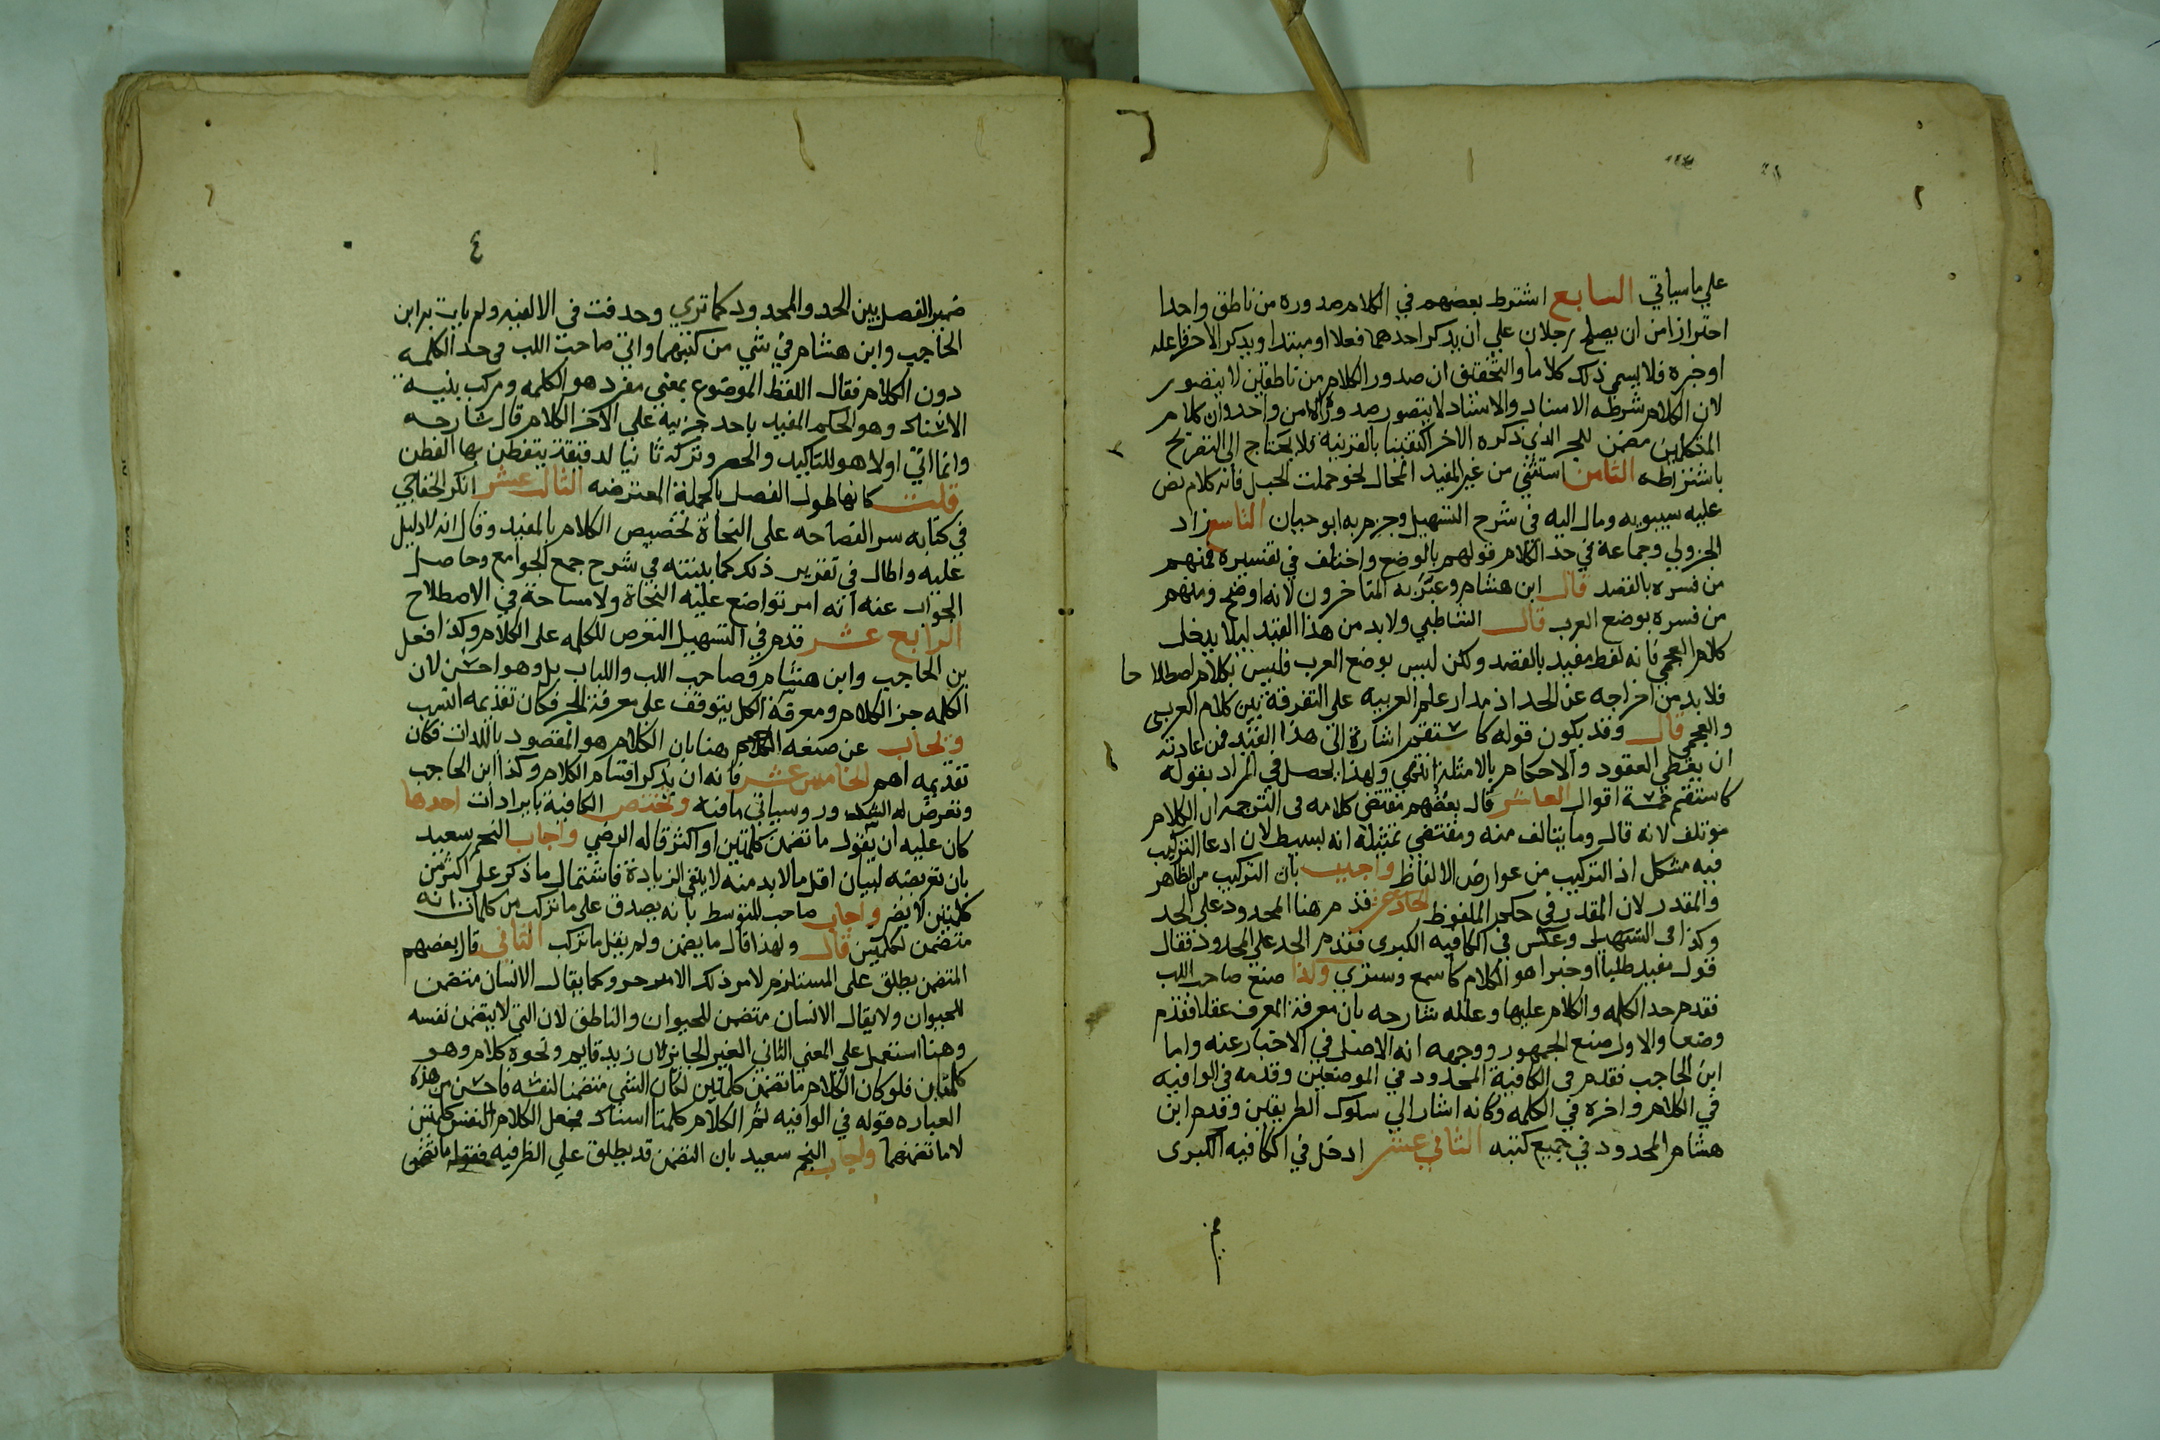 علي ما سياتي السابع اشترط بعضهم في الكلام صدوره من ناطق واحد ا
احترازا من ان يصلح رجلان علي ان يذكر احدهما فعلا او مبتدا ويذكر الاخر فاعله
او خبره فلا يسمي ذلك كلاما والتحقيق ان صدور الكلام من ناطقين لا يتصور
لان الكلام شرطه الاسناد والاسناد لا يتصور صدوره الا من واحد وان كلام
المتكلمين مضمن للجز الذي ذكره الاخر اكتفينا بالقرينة فلا يحتاج الي التصريح
باشتراطه الثامن استثني من غير المفيد المحال نحو حملت الجبل فانه كلام نص
عليه سيبويه ومال اليه في شرح التسهيل وجزم به ابو حيان التاسع زاد
الجزولي وجماعة في حد الكلام قولهم بالوضع واختلف في تفسيره فمنهم
من فسره بالقصد قال ابن هشام وعبر به المتاخرون لانه اوضح ومنهم
من فسره بوضع العرب قال الشاطبي ولا بد من هذا القيد ليلا يدخل
كلام العجمي فانه لفظ مفيد بالقصد ولكن ليس بوضع العرب فليس بكلام اصطلا حا
فلا بد من اخراجه عن الحد اذ مدار علم العربيه علي التفرقة بين كلام العربي
والعجمي قال وقد يكون قوله كاستقم اشارة الي هذا القيد فمن عادته
ان يعطي العقود والاحكام بالامثلة انتهي ولهذا يحصل في المراد بقوله
كاستقم خمسة اقوال العاشر قال بعضهم مقتضي كلامه في الترجمه ان الكلام
موتلف لانه قال وما يتالف منه ومقتضي تمثيله انه بسيط لان ادعا التركيب
فيه مشكل اذ التركيب من عوارض الالفاظ واجيب بان التركيب من الظاهر
والمقدر لان المقدر في حكم الملفوظ الحادي عشر قدم هنا المحدود علي الحد
وكذا في التسهيل وعكس في الكافيه الكبري فقدم الحد علي المحدود فقال
قول مفيد طلبا او خبرا هو الكلام كاسمع وستري وكذا صنع صاحب اللب
فقدم حد الكلمه والكلام عليها وعلله شارحه بان معرفة المعرف عقلا فقدم
وضعا والاول صنع الجمهور ووجهه انه الاصل في الاخبار عنه واما
ابن الحاجب فقدم في الكافية المحدود في الموضعين وقدمه في الوافيه
في الكلام واخره في الكلمه وكانه اشار الي سلوك الطريقين وقدم ابن
هشام المحدود في جميع كتبه الثاني عشر ادخل في الكافيه الكبري
٤
ضمير الفصل بين الحد والمحدود كما تري وحذفت في الالفيه ولم يات به ابن
الحاجب وابن هشام في شي من كتبهما واتي صاحب اللب في حد الكلمه
دون الكلام فقال اللفظ الموضوع بمعني مفرد هو الكلمه ومركب بنيه
الاسناد وهو الحكم المفيد باحد جزييه علي الاخر الكلام قال شارحه
وانما اتي اولا هو للتاكيد والحصر وتركه ثانيا لدقيقة يتفطن بها الفطن
قلت كانها طول الفصل بالجملة المعترضه الثالث عشر انكر الخفاجي
في كتابه سر الفصاحه علي النحاة تخصيص الكلام بالمفيد وقال انه لا دليل
عليه واطال في تقرير ذلك كما بينته في شرح جمع الجوامع وحاصل
الجواب عنه انه امر تواضع عليه النحاة ولا مساحة في الاصطلاح
الرابع عشر قدم في التسهيل التعرض للكلمه علي الكلام وكذا فعل
بن الحاجب وابن هشام وصاحب اللب واللباب بل وهو احسن لان
الكلمه جز الكلام ومعرفة الكل يتوقف علي معرفة الجز فكان تقديمه انسب
ويجاب عن صنعه هنا بان الكلام هو المقصود بالذات فكان
تقديمه اهم الخامس عشر فانه ان يذكر اقسام الكلام وكذا ابن الحاجب
وتعرض له الشذور وسياتي ما فيه وتختص الكافية بايرادات احدها
كان عليه ان يقول ما تضمن كلمتين او اكثر قاله الرضي واجاب النجم سعيد
بان تعريضه لبيان اقل ما لا بد منه لا ينفي الزيادة فاشتمال ما ذكر علي اكثر من
كلمتين لا يضر واجاب صاحب المتوسط بانه يصدق علي ما تركب من كلمات انه
متضمن لكلمتين قال ولهذا قال ما يضمن ولم يقل ما تركب الثاني قال بعضهم
المتضمن يطلق علي المستلزم لامر ذلك الامر جزوه كما يقال الانسان متضمن
للحيوان ولا يقال الانسان متضمن للحيوان والناطق لان الشي لا يتضمن نفسه
وهنا استعمل علي المعني الثاني الغير الجايز لان زيد قايم ونحوه كلام وهو
كلمتان فلو كان الكلام ما تضمن كلمتين لكان الشي متضمنا لنفسه فاحسن من هذه
العباره قوله في الوافيه ثم الكلام كلمتا اسناد فجعل الكلام النفس كلمتين
لا ما تضمنهما واجاب النجم سعيد بان التضمن قد يطلق علي الظرفيه فقوله ما تضمن